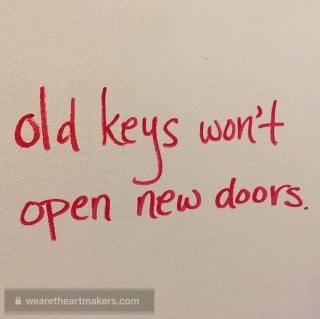 old keys won't
open new doors.
wearetheartmakers.com